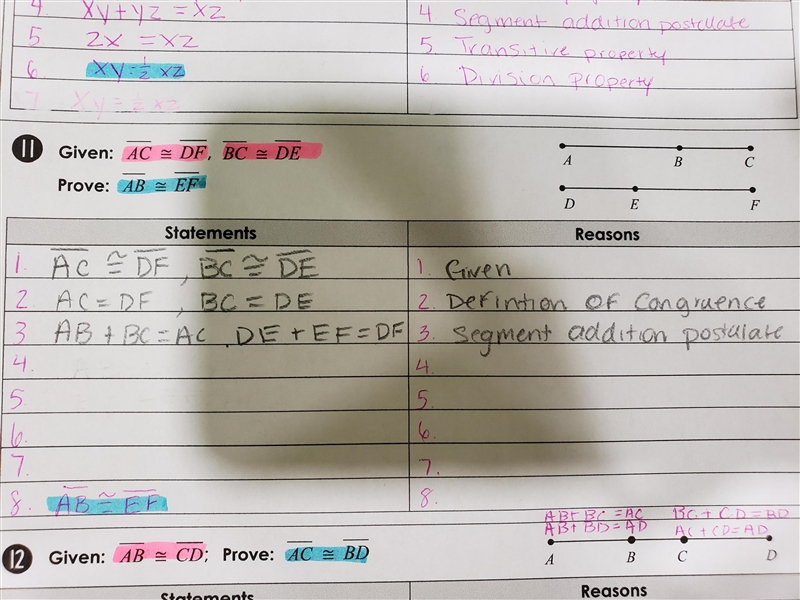 4. xy + yz = xz
4 Segment addition postulate
5. 2x = xz
5. Transitive property
6. xy = 1/2 xz
6 Division property
7 xy = 1/2 xz
11 Given: AC ≅ DF, BC ≅ DE
Prove: AB ≅ EF
A B C
D E F
Statements Reasons
1. AC ≅ DF, BC ≅ DE
1. Given
2. AC = DF, BC = DE
2. Defintion OF Congruence
3 AB + BC = AC, DE + EF = DF
3. Segment addition postulate
4. 4.
5. 5.
6. 6.
7. 7.
8. AB ≅ EF 8.
AB + BC = AC BC + CD = BD
AB + BD = AD AC + CD = AD
12 Given: AB ≅ CD; Prove: AC ≅ BD
A B C D
Statements Reasons